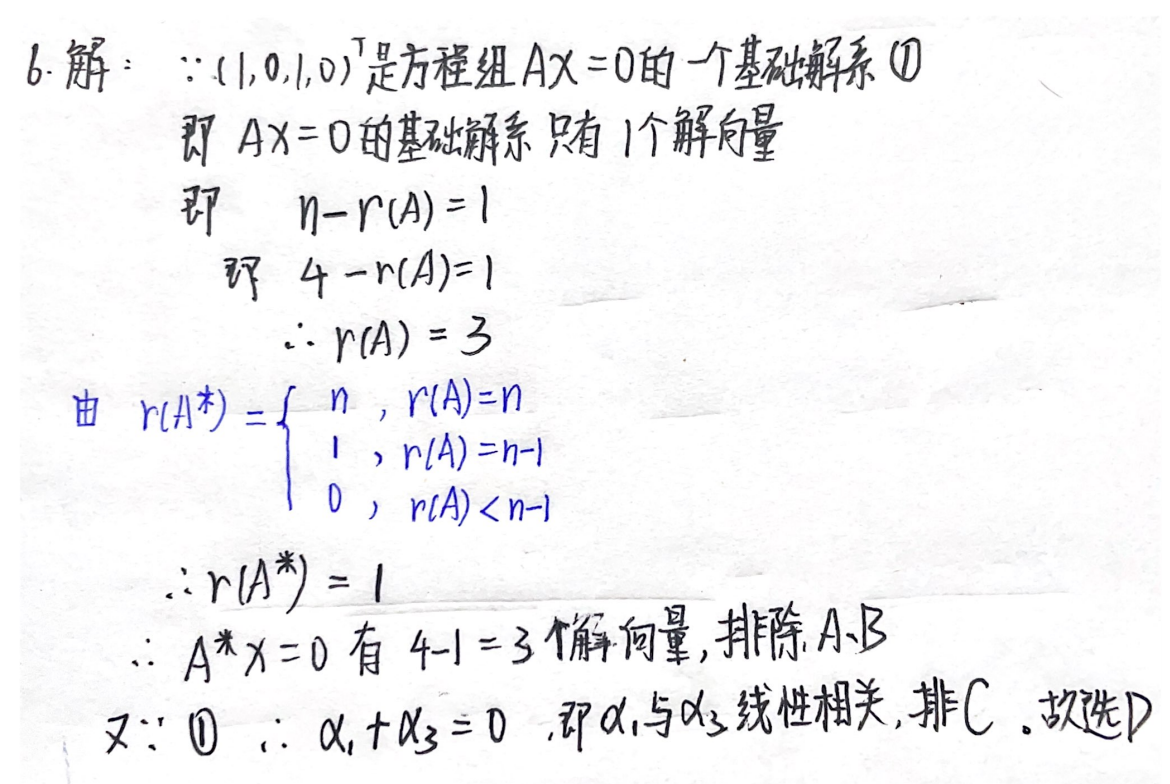 6. 解： ∵ (1,0,1,0)ᵀ是方程组AX=0的一个基础解系①
即 AX=0的基础解系只有1个解向量
即 n-r(A)=1
即 4-r(A)=1
∴ r(A) = 3
由 r(A*) = { n , r(A)=n
1 , r(A)=n-1
0 , r(A)<n-1
∴ r(A*) = 1
∴ A*X=0 有 4-1=3个解向量,排除A、B
又∵ ① ∴ α₁+α₃=0 ,即α₁与α₃线性相关,排C 。故选D